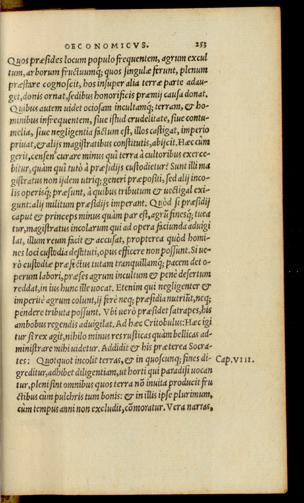 OECONOMICVS. 253
Quos præsides locum populo frequentem, agrum excul
tum, arborum fructuumq; quos singulæ ferunt, plenum
præstare cognoscit, hos insuper alia terræ parte adau-
get, donis ornat, sedibus honorificis præmij causa donat.
Quibus autem uidet ociosam incultamq; terram, & ho-
minibus infrequentem, siue istud crudelitate, siue contu-
melia, siue negligentia factum est, illos castigat, imperio
priuat, & alijs magistratibus constitutis, abijcit. Hæc cum
gerit, censen' curare minus quâ terra à cultoribus exerce-
bitur, quàm quâ tutò à præsidijs custodietur? Sunt illi ma
gistratus non ijdem utriq; generi præpositi, sed alij inco-
lis operisq; præsunt, à quibus tributum & uectigal exi-
gunt: alij militum præsidijs imperant. Quòd si præsidij
caput & princeps minus quàm par est, agrū finesq; tuea
tur, magistratus incolarum qui ad opera faciunda aduigi
lat, illum reum facit & accusat, propterea quòd homi-
nes loci custodia destituti, opus efficere non possunt. Si ue-
rò custodiæ præfectus tutam tranquillamq; pacem det o-
perum labori, præses agrum incultum & penè desertum
reddat, in ius hunc ille uocat. Etenim qui negligenter &
imperitè agrum colunt, ij ferè neq; præsidia nutriūt, neq;
pendere tributa possunt. Vbi uerò præsidet satrapes, his
ambobus regendis aduigilat. Ad hæc Critobulus: Hæc igi
tur si rex agit, nihilo minus res rusticas quàm bellicas ad-
ministrare mihi uidetur. Addidit & his præterea Socra-
tes: Quotquot incolit terras, & in quoscunq; fines di- Cap. VIII.
greditur, adhibet diligentiam, ut horti qui paradisi uocan
tur, pleni sint omnibus quos terra nō inuita producit fru
ctibus cùm pulchris tum bonis: & in illis ipse plurimum,
cùm tempus anni non excludit, cōmoratur. Vera narras,